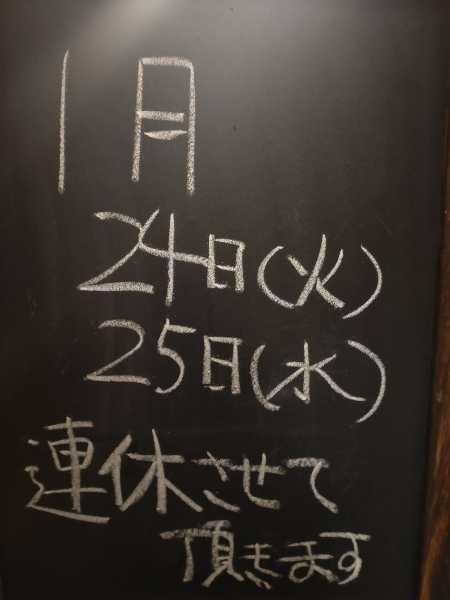 1月
24日(火)
25日(水)
連休させて
頂きます